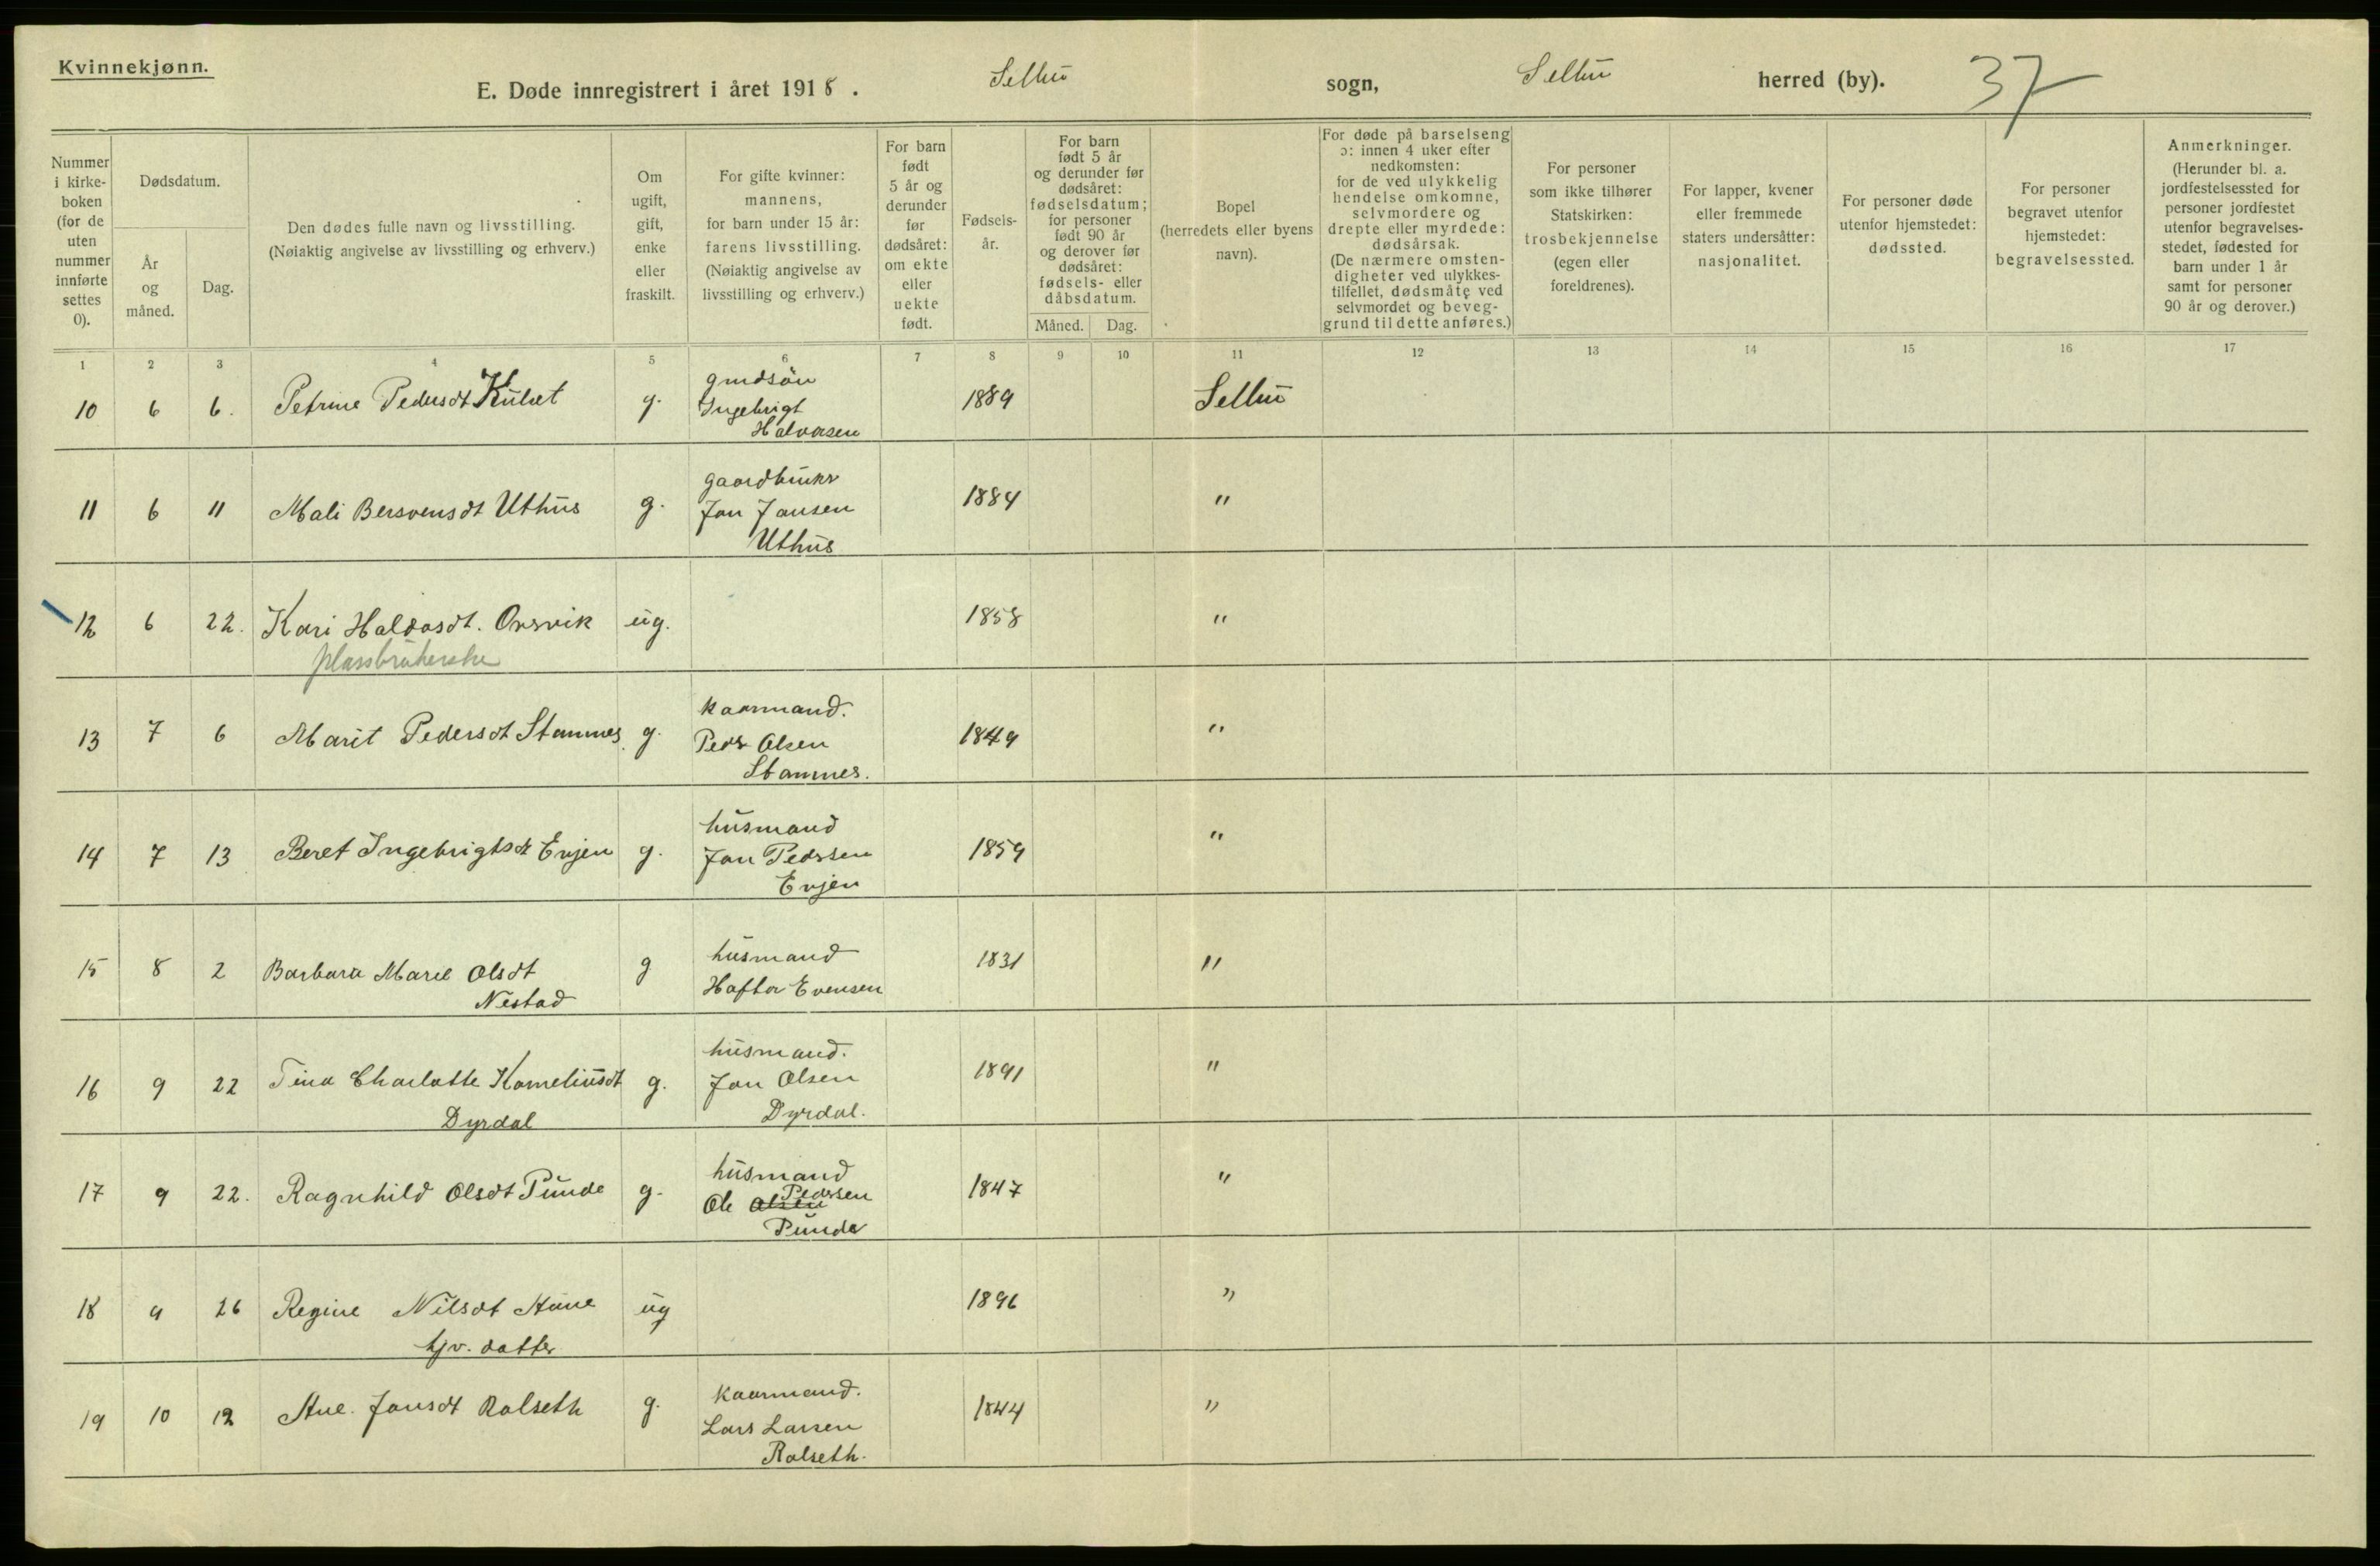 Kvinnekjønn.
E. Døde innregistrert i året 1918. Selbu sogn, Selbu herred (by). 37
Nummer i kirkeboken (for de uten nummer innførte settes 0).
Dødsdatum.
År og måned.
Dag.
Den dødes fulle navn og livsstilling.
(Nøiaktig angivelse av livsstilling og erhverv.)
Om ugift, gift, enke eller fraskilt.
For gifte kvinner: mannens, for barn under 15 år: farens livsstilling. (Nøiaktig angivelse av livsstilling og erhverv.)
For barn født 5 år og derunder før dødsåret: om ekte eller uekte født.
Fødsels-år.
For barn født 5 år og derunder før dødsåret: fødselsdatum; for personer født 90 år og derover før dødsåret: fødsels- eller dåbsdatum.
Måned.
Dag.
Bopel (herredets eller byens navn).
For døde på barselseng ɔ: innen 4 uker efter nedkomsten: for de ved ulykkelig hendelse omkomne, selvmordere og drepte eller myrdede: dødsårsak. (De nærmere omstendigheter ved ulykkestilfellet, dødsmåte ved selvmordet og beveggrund til dette anføres.)
For personer som ikke tilhører Statskirken: trosbekjennelse (egen eller foreldrenes).
For lapper, kvener eller fremmede staters undersåtter: nasjonalitet.
For personer døde utenfor hjemstedet: dødssted.
For personer begravet utenfor hjemstedet: begravelsessted.
Anmerkninger. (Herunder bl. a. jordfestelsessted for personer jordfestet utenfor begravelsesstedet, fødested for barn under 1 år samt for personer 90 år og derover.)
1 2 3 4 5 6 7 8 9 10 11 12 13 14 15 16 17
10 6 6. Petrine Pedersdt Kulset g. grdsøn Ingebrigt Halvorsen 1889 Selbu
11 6 11 Mali Bersvensdt Uthus g. gaardbruker Jon Jonsen Uthus 1884 "
12 6 22. Kari Haldosdt. Orsvik ug. 1858 "
plassbrukerske
13 7 6 Marit Pedersdt Stamnes g. kaarmand. Peder Olsen Stamnes. 1849 "
14 7 13 Beret Ingebrigtsdt Evjen g. husmand Jon Pedersen Evjen 1859 "
15 8 2 Barbara Marie Olsdt Nestad g husmand Haftor Evensen 1831 "
16 9 22 Tina Charlotte Korneliusdt Dyrdal g. husmand. Jon Olsen Dyrdal. 1891 "
17 9 22. Ragnhild Olsdt Punde g. husmand Ole Olsen Pedersen Punde 1847 "
18 9 26 Regine Nilsdt Aune ug 1896 "
hjv. datter
19 10 12 Ane Jonsdt Rolseth g. kaarmand. Lars Larsen Rolseth. 1844 "